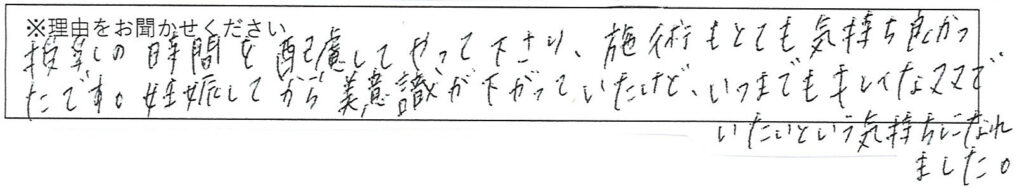 ※理由をお聞かせください
授乳の時間を配慮してやって下さり、施術もとても気持ち良かっ
たです。妊娠してから美意識が下がっていたけど、いつまでもキレイなママで
いたいという気持ちになれ
ました。